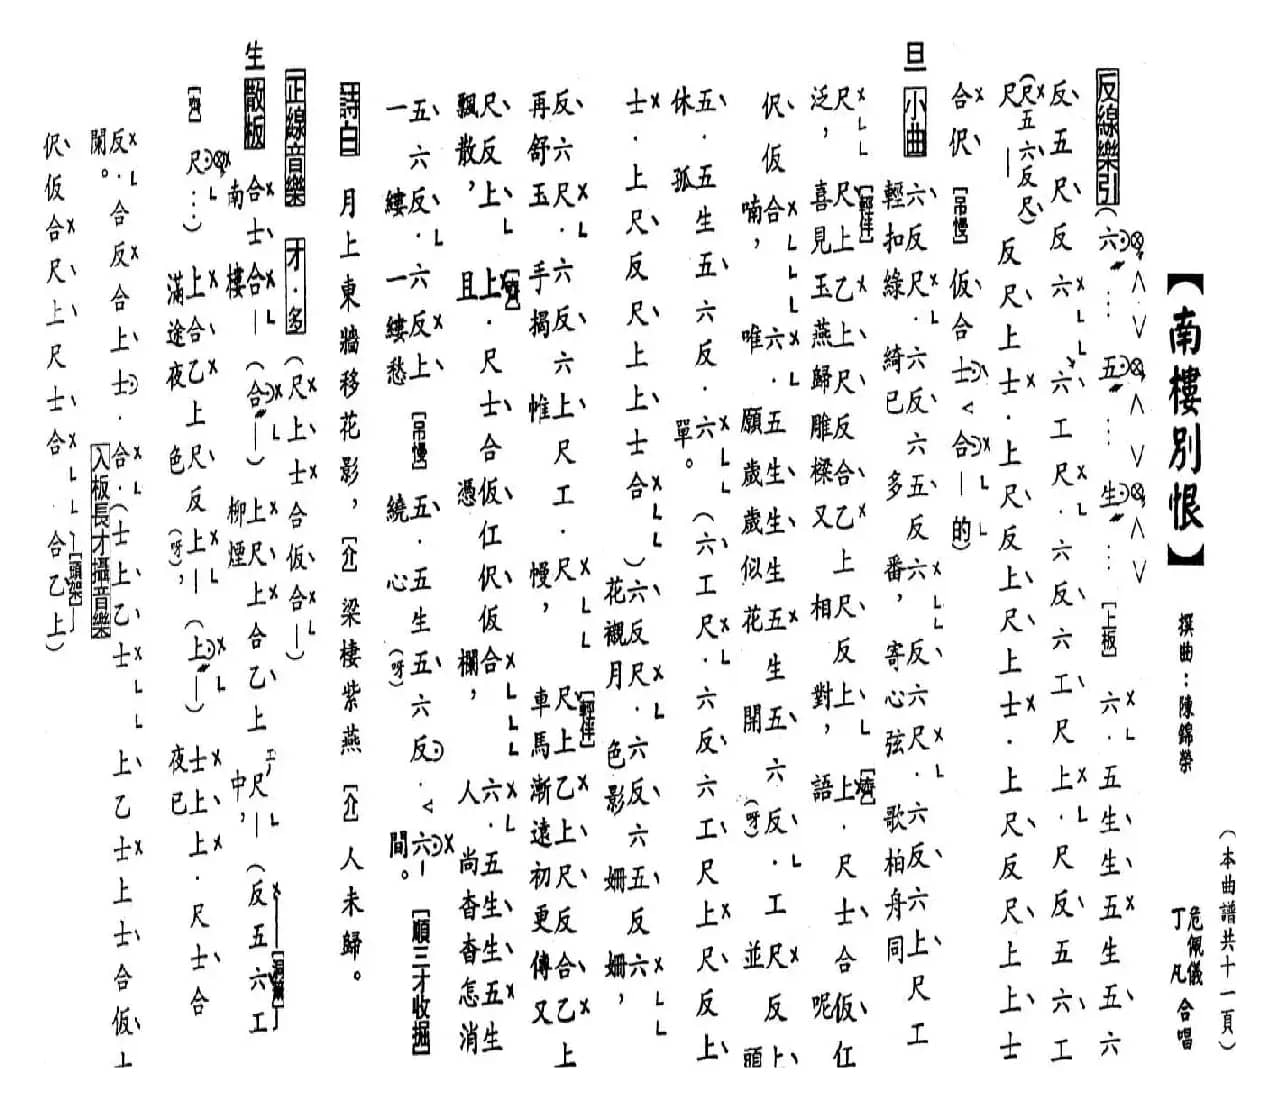 （本曲譜共十一頁）
【南樓別恨】 撰曲：陳錦榮 危佩儀 丁凡 合唱
反線樂引（六…五…生…［上板］六．五生生五生五六
反五尺反六六工尺．六反六工尺上．尺反五六工
尺—（尺五六反尺）反尺上士．上尺反上尺上士．上尺反尺上上士
合伬［吊慢］仮合士＜合—的）
旦 小曲 六反尺．六反六五反六反六尺．六反六上尺工
輕扣綠綺已多番，寄心弦歌柏舟同
尺［輕佯］尺上乙上尺反合乙上尺反上［齊］上．尺士合仮仜
泛，喜見玉燕歸雕樑又相對，語呢
伬仮合六．五生生生五生五六反．工尺反上
喃，唯願歲歲似花開（呀）並頭
五．五生五六反．六（六工尺．六反六工尺上尺反上
休孤單。
士．上尺反尺上上士合）六反尺．六反六五反六
花襯月色影姍姍，
反六尺．六反六上尺工．尺［輕佯］尺上乙上尺反合乙上
再舒玉手揭帷幔，車馬漸遠初更傳又
尺反上［齊］上．尺士合仮仜伬仮合六．五生生五生
飄散，且憑欄，人尚杳杳怎消
五六反．六反上［吊慢］五．五生五六反．＜六—［順三才收掘］
一縷一縷愁繞心（呀）間。
詩白 月上東牆移花影，［介］梁棲紫燕［介］人未歸。
正線音樂 才．多（尺上士合仮合—）
生 散板 合士合—（合—）上尺上合乙上尺—（反五六工［洞簫］
南樓柳煙中，
［齊］尺…）上合乙上尺反上—（上—）士上上．尺士合
滿途夜色（呀），夜已
反．合反合上士．合．（士上乙士上乙士上士合仮上
闌。 入板長才攝音樂
伬仮合尺上尺士合［頭架］合乙上）